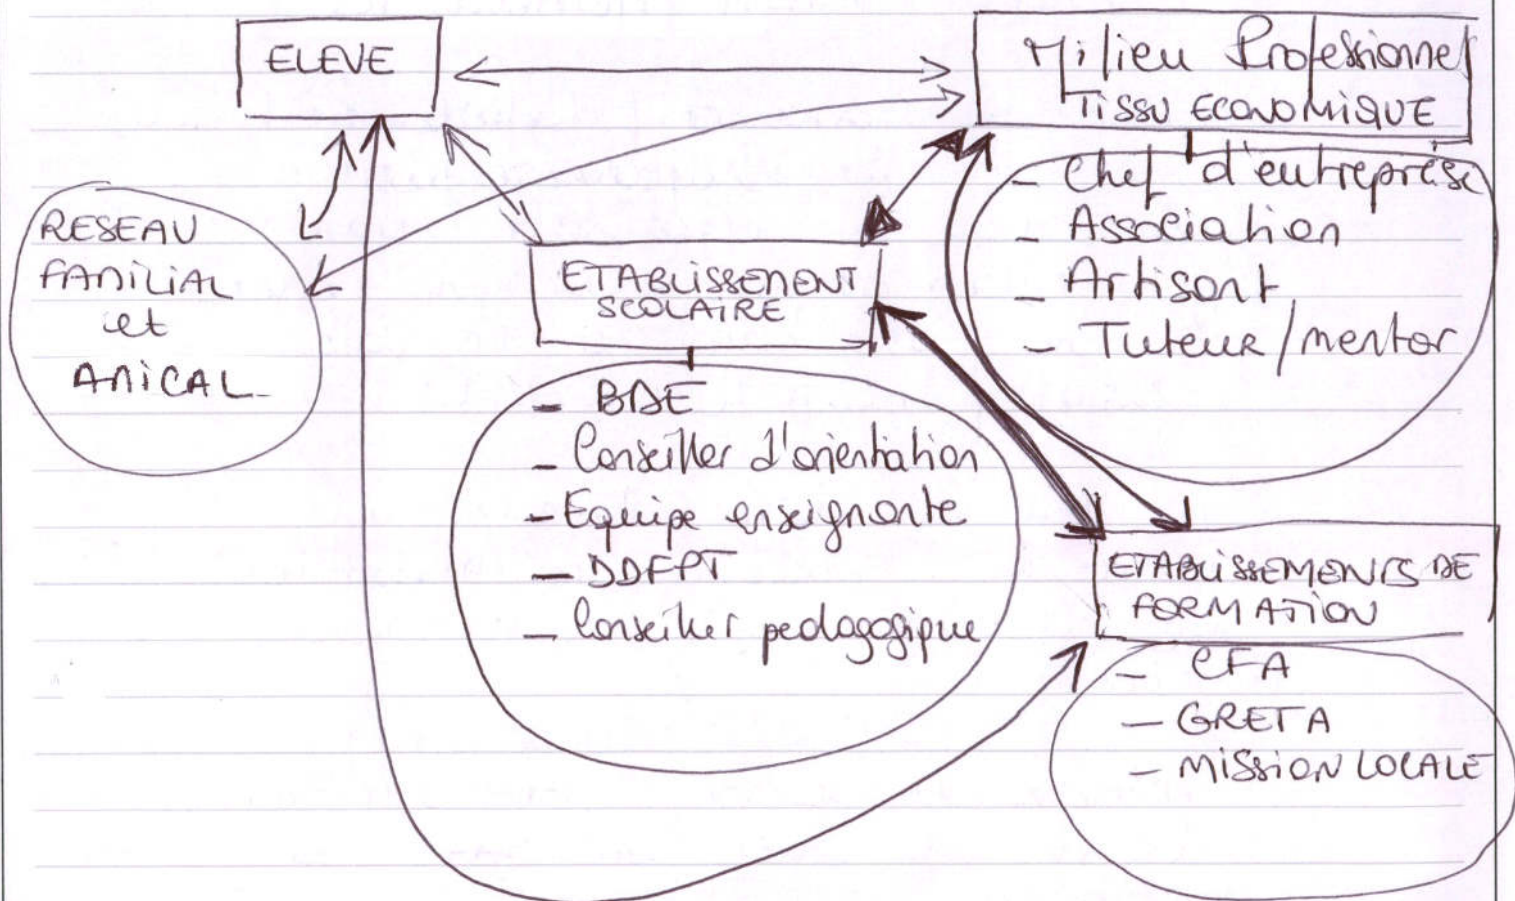 ELEVE
Milieu Professionnel
TISSU ECONOMIQUE
- Chef d'entreprise
- Association
- Artisant
- Tuteur/mentor
RESEAU
FAMILIAL
et
AMICAL
ETABLISSEMENT
SCOLAIRE
- BDE
- Conseiller d'orientation
- Equipe enseignante
- DDFPT
- Conseiller pedagogique
ETABLISSEMENTS DE
FORMATION
- CFA
- GRETA
- MISSION LOCALE